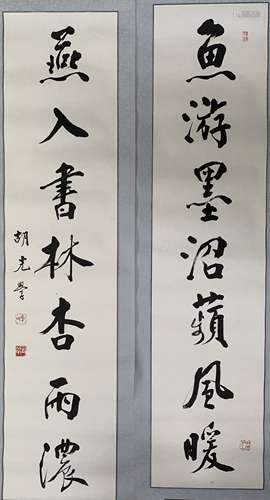 魚游墨沼蘋風暖
燕入書林杏雨濃
胡光學